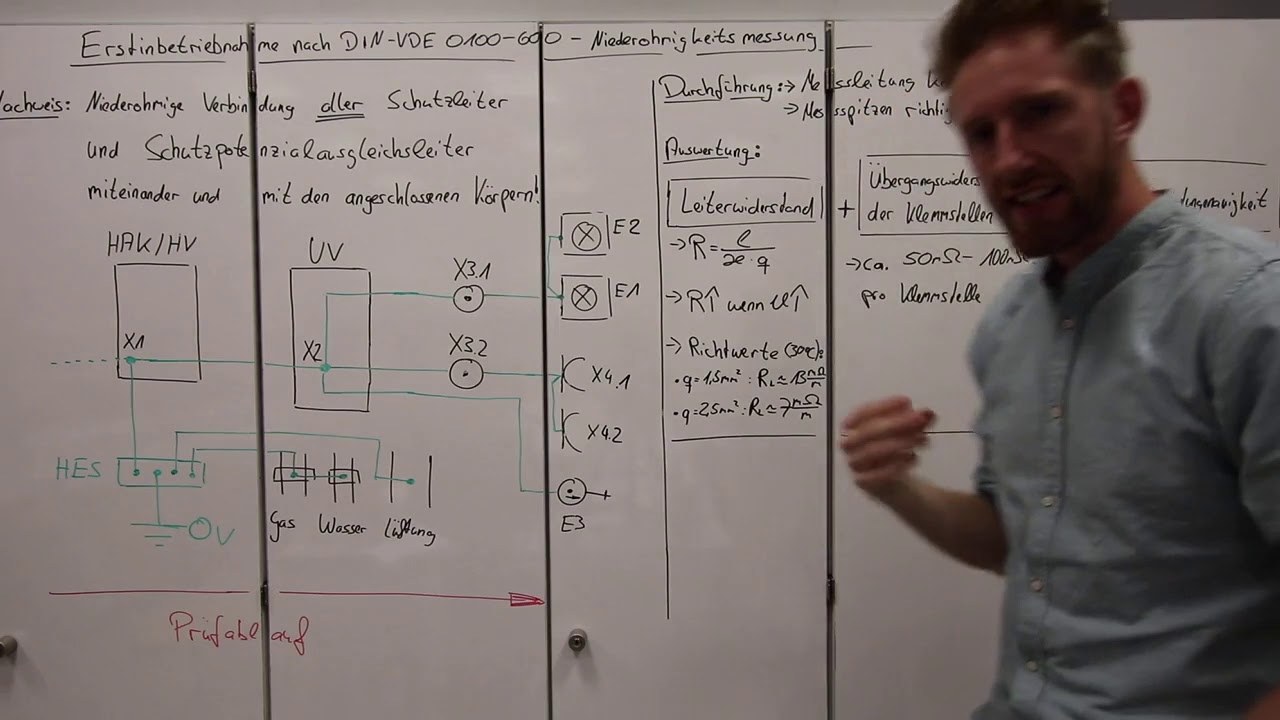 Erstinbetriebnahme nach DIN-VDE 0100-600 - Niederohrigkeitsmessung
Nachweis: Niederohmige Verbindung aller Schutzleiter
und Schutzpotenzialausgleichsleiter
miteinander und mit den angeschlossenen Körpern!
HAK/HV
X1
UV
X2
X3.1
X3.2
E2
E1
X4.1
X4.2
E3
HES
0V
Gas Wasser Lüftung
Prüfablauf
Durchführung: → Messleitung
→ Messspitzen richtig
Auswertung:
Leiterwiderstand
+
→ R = l / æ · q
→ R↑ wenn ϑ↑
→ Richtwerte (30°C):
• q=1,5mm² : RL ≈ 13 mΩ/m
• q=2,5mm² : RL ≈ 7 mΩ/m
Übergangswiders
der Klemmstellen
→ ca. 50mΩ - 100mΩ
pro Klemmstelle